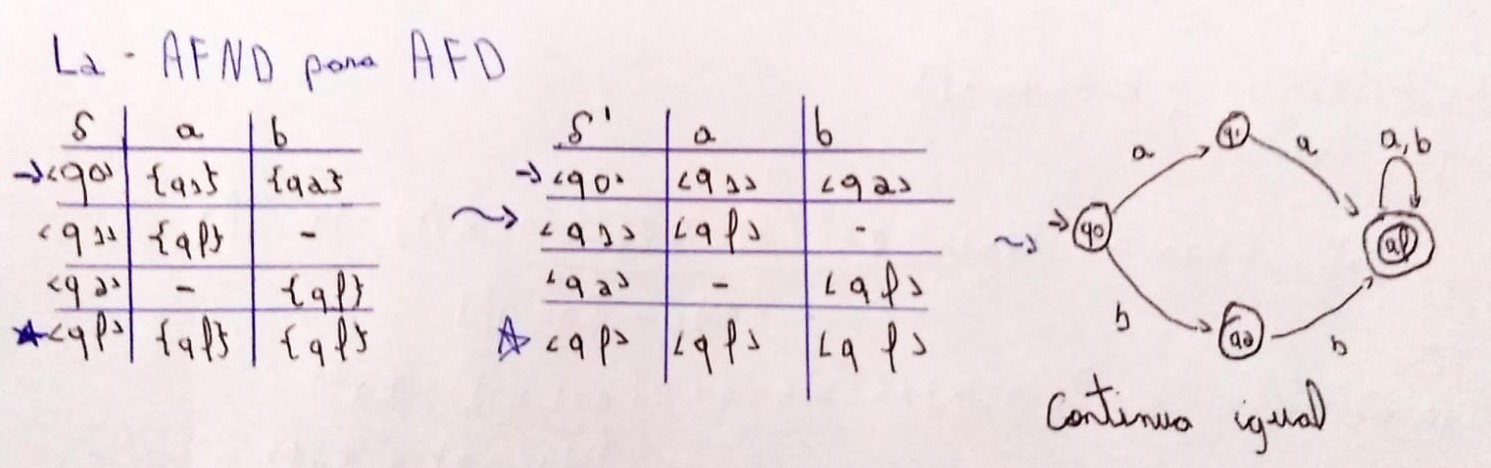 L2 - AFND para AFD
δ a b
→<q0> {q1} {q2}
<q1> {qf} -
<q2> - {qf}
★<qf> {qf} {qf}
δ' a b
→<q0> <q1> <q2>
<q1> <qf> -
<q2> - <qf>
☆<qf> <qf> <qf>
q1
a
a
a,b
q0
qf
b
q2
b
Continua igual